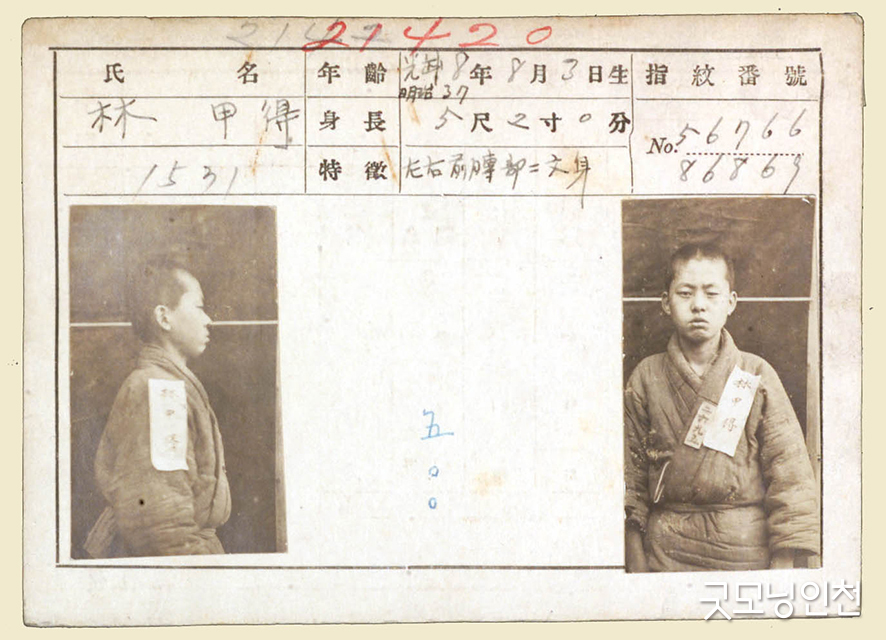 21420
氏名 年齡 光武8年8月3日生 指紋番號
明治37
林甲得 身長 5尺2寸0分 No. 56766
86869
1531 特徵 左右前膊部ニ文身
林甲得
林甲得
二十九五
五〇〇
굿모닝인천